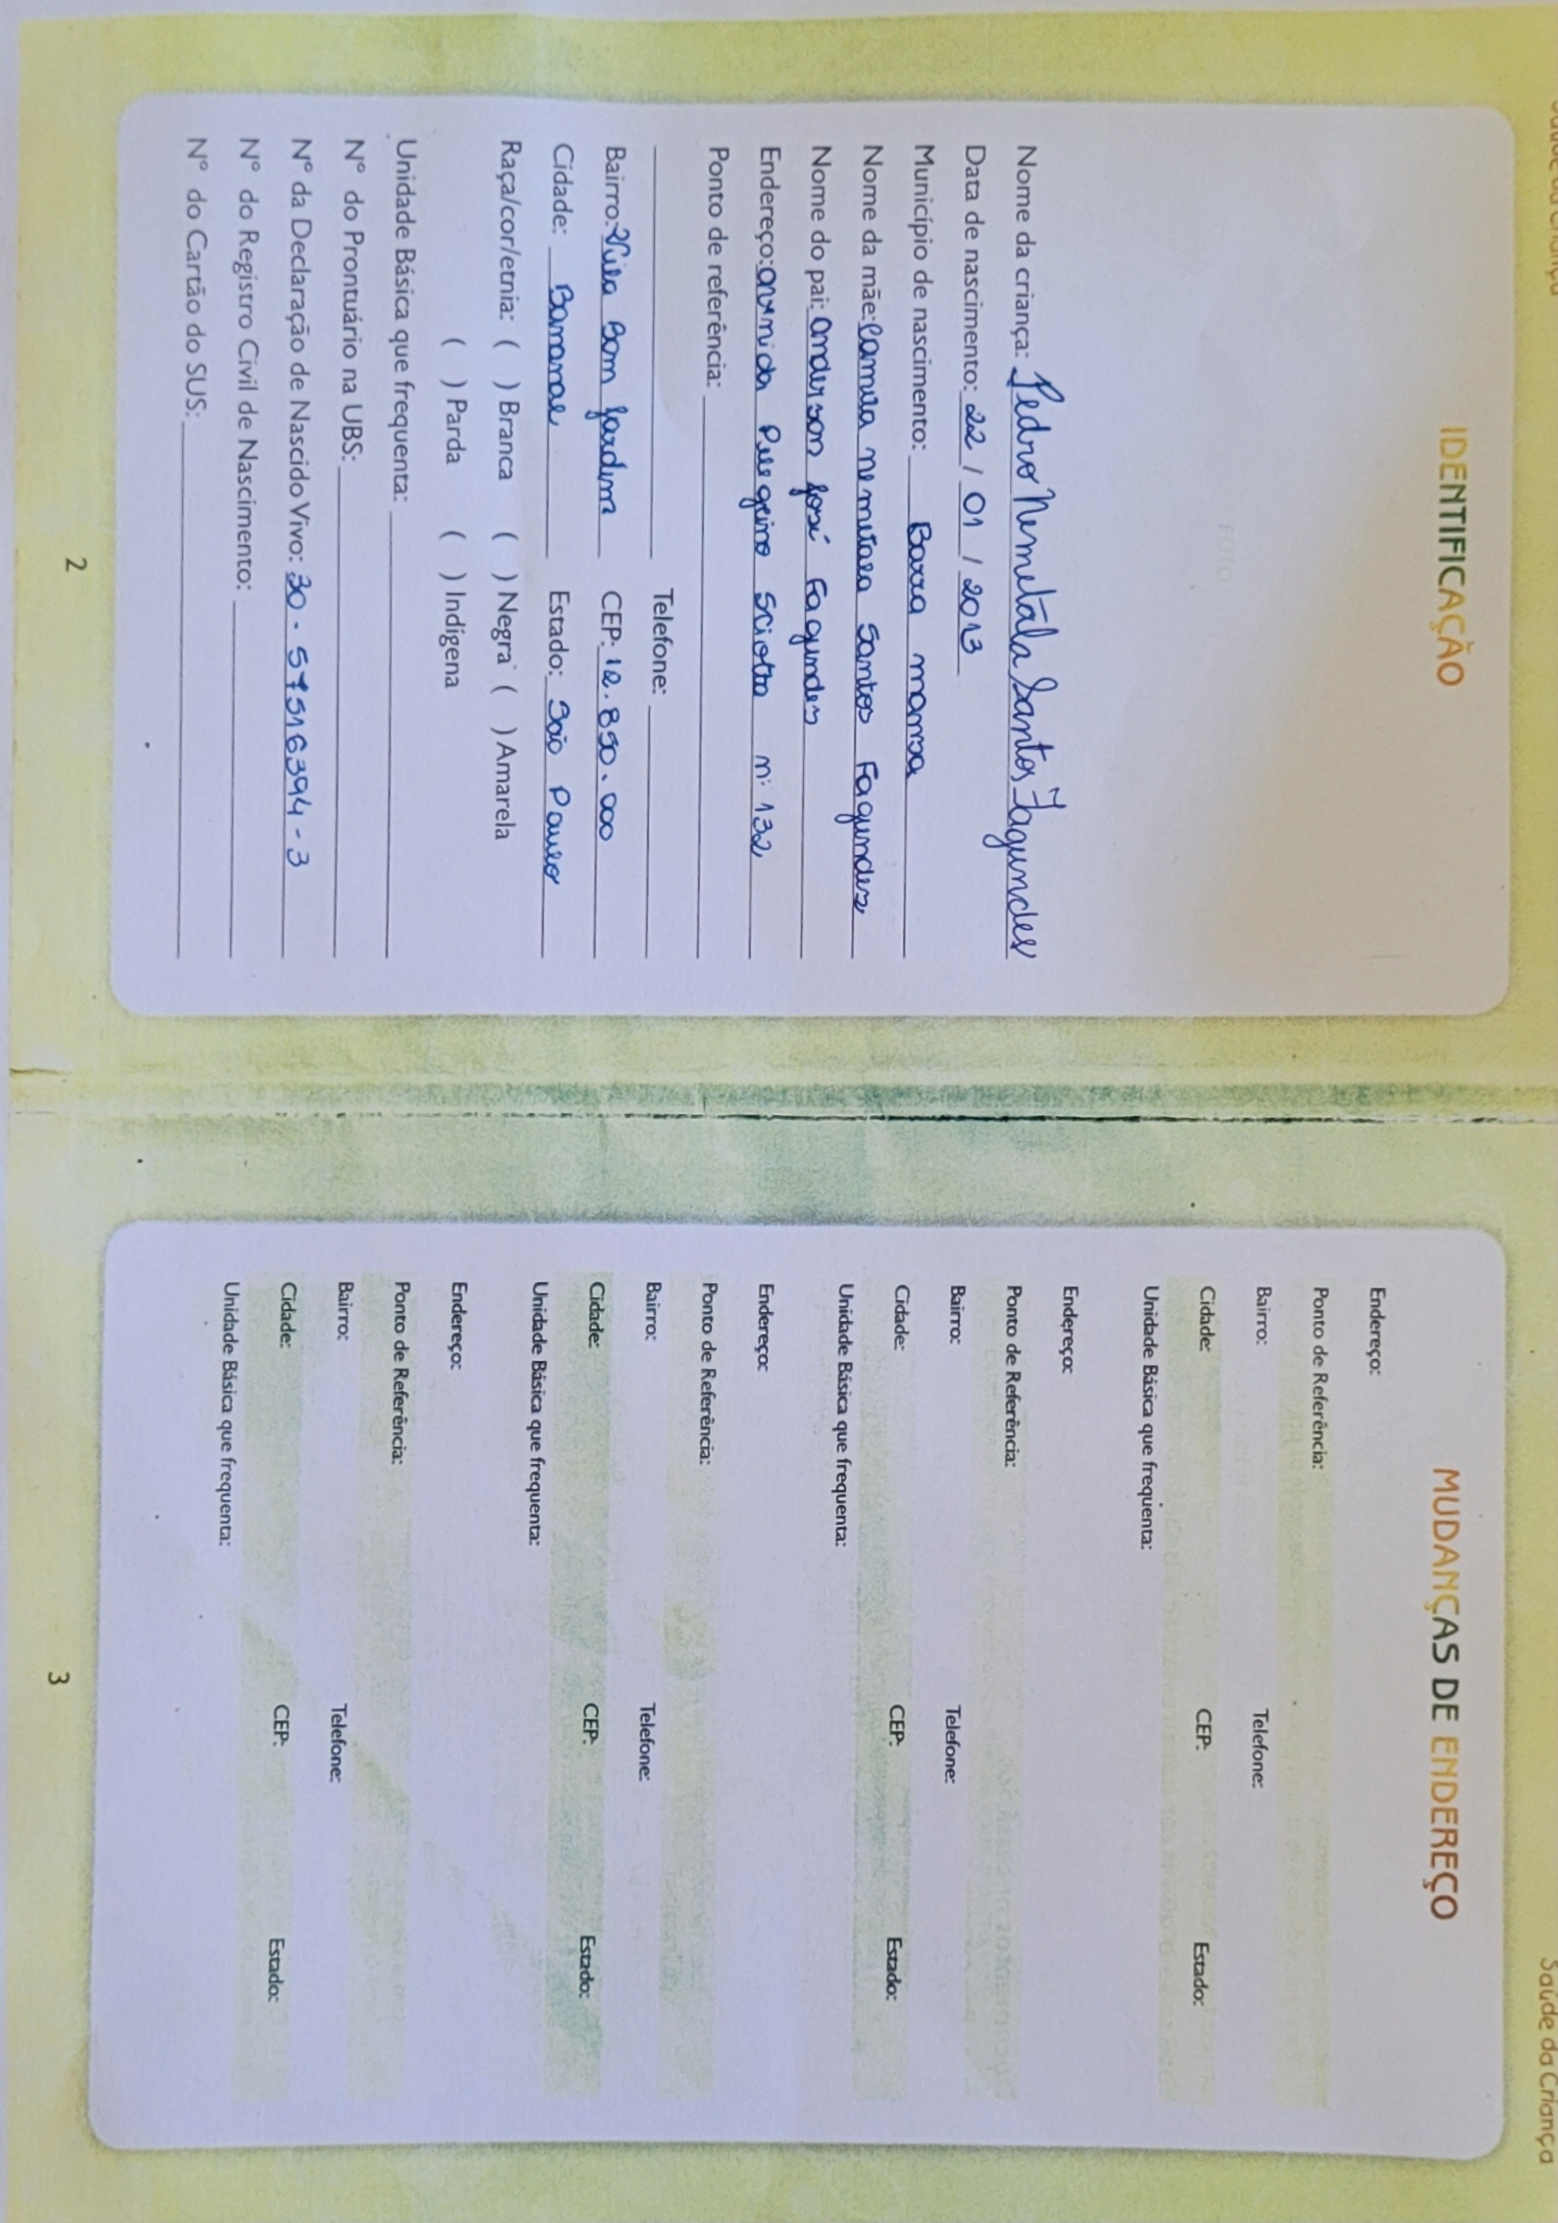 IDENTIFICAÇÃO
Nome da criança: Pedro Nemetala Santos Fagundes
Data de nascimento: 22 / 01 / 2013
Município de nascimento: Barra mansa
Nome da mãe: Camila nemetala Santos Fagundes
Nome do pai: Anderson José Fagundes
Endereço: Avenida n: 132
Ponto de referência:
Telefone:
Bairro: Vila Bom Jardim CEP: 12.850.000
Cidade: Bananal Estado: São Paulo
Raça/cor/etnia: ( ) Branca ( ) Negra ( ) Amarela
( ) Parda ( ) Indígena
Unidade Básica que frequenta:
Nº do Prontuário na UBS:
Nº da Declaração de Nascido Vivo: 30-57516394-3
Nº do Registro Civil de Nascimento:
Nº do Cartão do SUS:
2
Saúde da Criança
MUDANÇAS DE ENDEREÇO
Endereço:
Ponto de Referência:
Bairro: Telefone:
Cidade: CEP: Estado:
Unidade Básica que frequenta:
Endereço:
Ponto de Referência:
Bairro: Telefone:
Cidade: CEP: Estado:
Unidade Básica que frequenta:
Endereço:
Ponto de Referência:
Bairro: Telefone:
Cidade: CEP: Estado:
Unidade Básica que frequenta:
Endereço:
Ponto de Referência:
Bairro: Telefone:
Cidade: CEP: Estado:
Unidade Básica que frequenta:
3